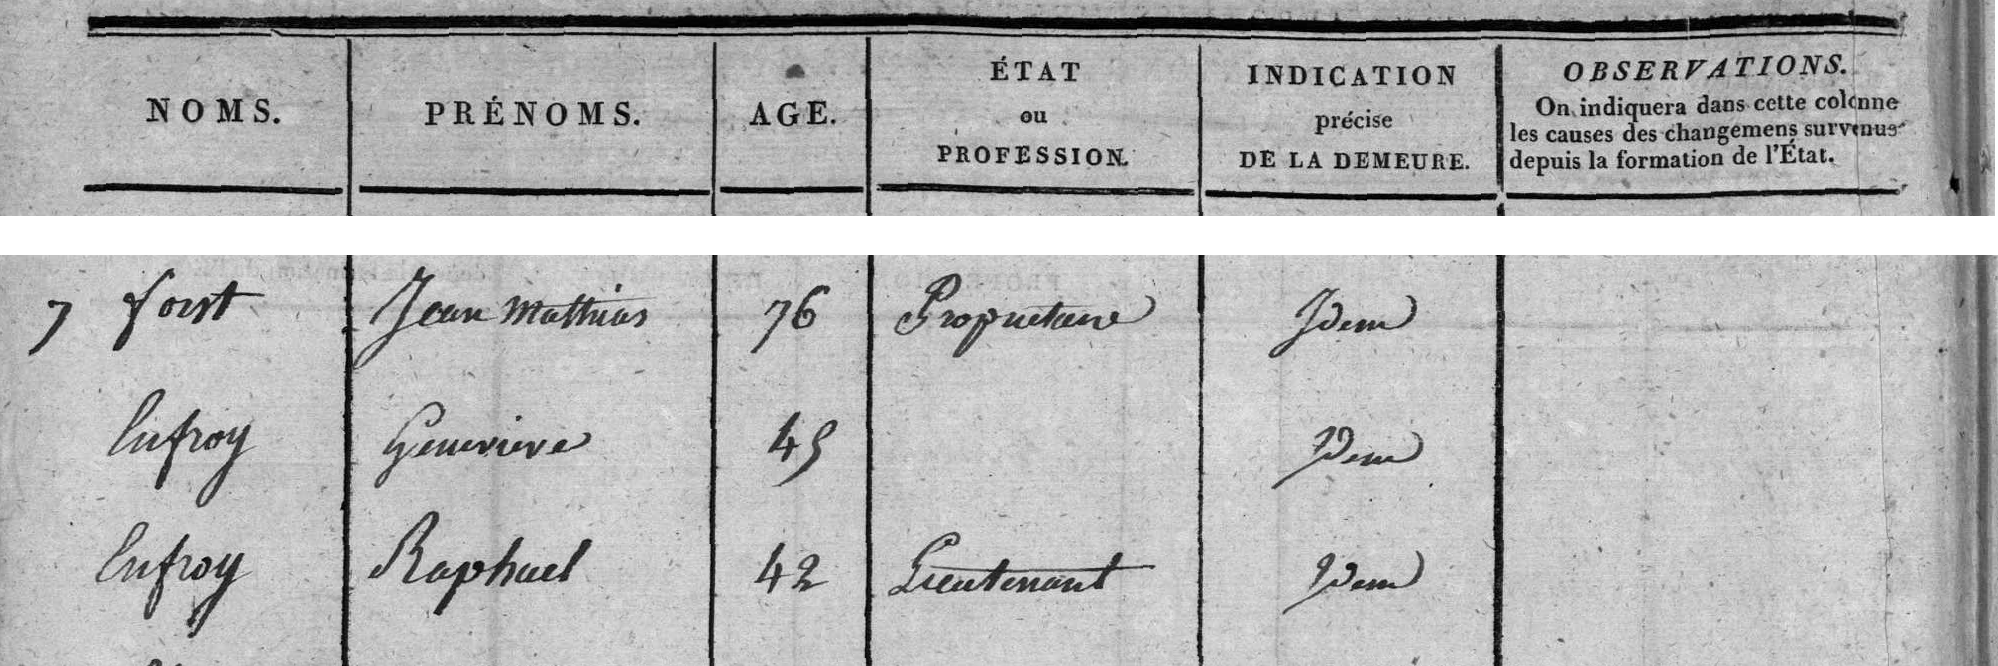 NOMS. PRÉNOMS. AGE. ÉTAT ou PROFESSION. INDICATION précise DE LA DEMEURE. OBSERVATIONS. On indiquera dans cette colonne les causes des changemens survenus depuis la formation de l'État.
7 forst Jean Mathias 76 Proprietaire Idem
Enfroy Genevieve 45 Idem
Enfroy Raphael 42 Lieutenant Idem